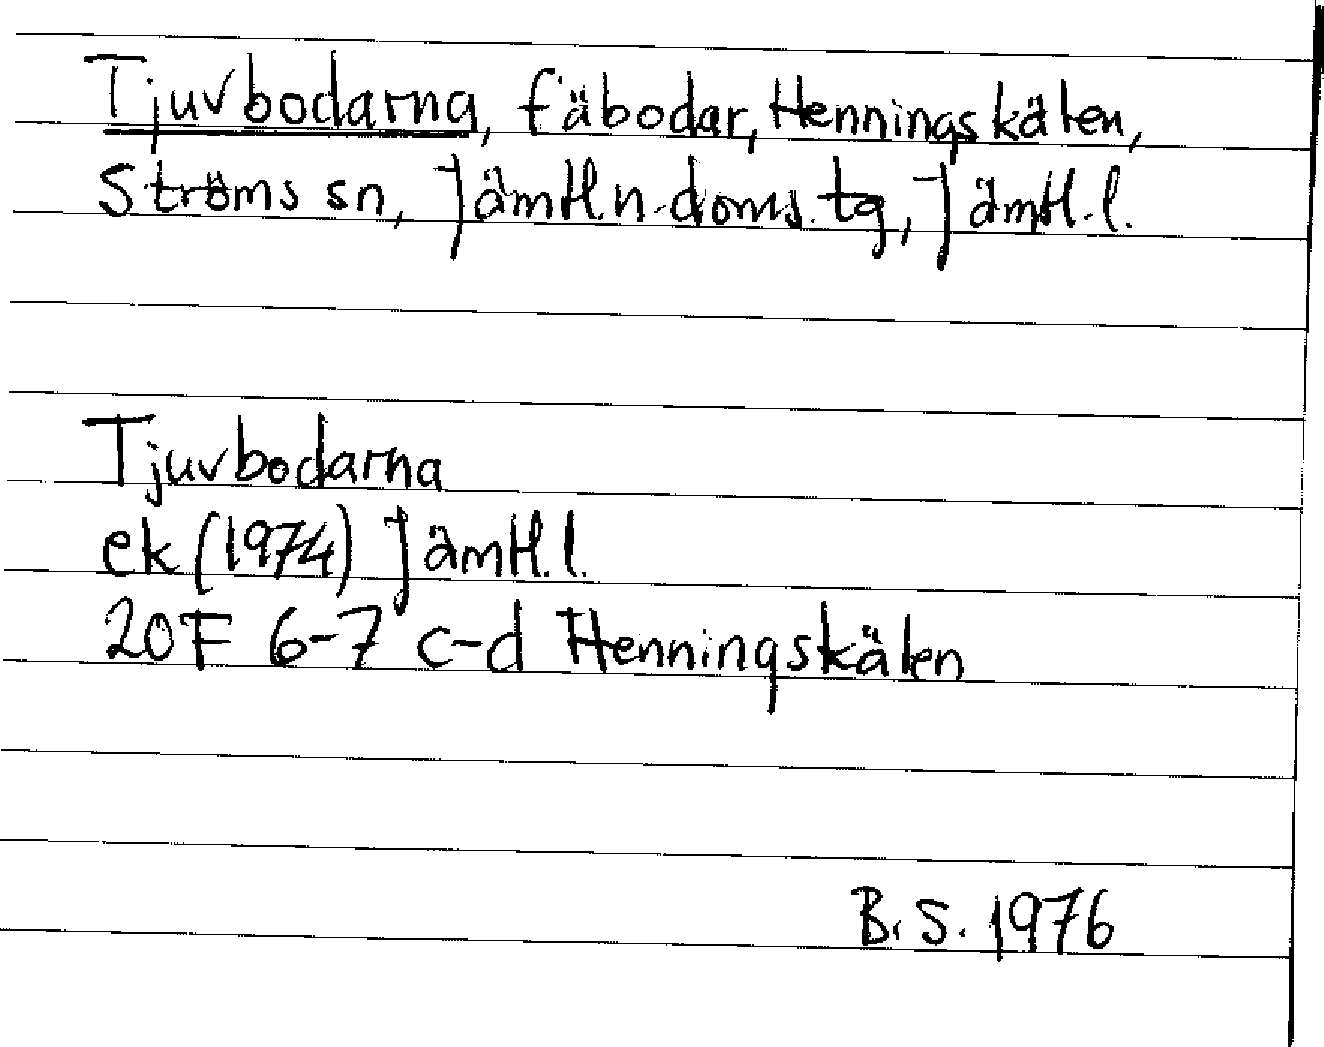 Tjuvbodarna, fäbodar, Henningskälen,
Ströms sn, Jämtl.n.doms.tg, Jämtl.l.
Tjuvbodarna
ek (1974) Jämtl.l.
20F 6-7 c-d Henningskälen
B.S. 1976